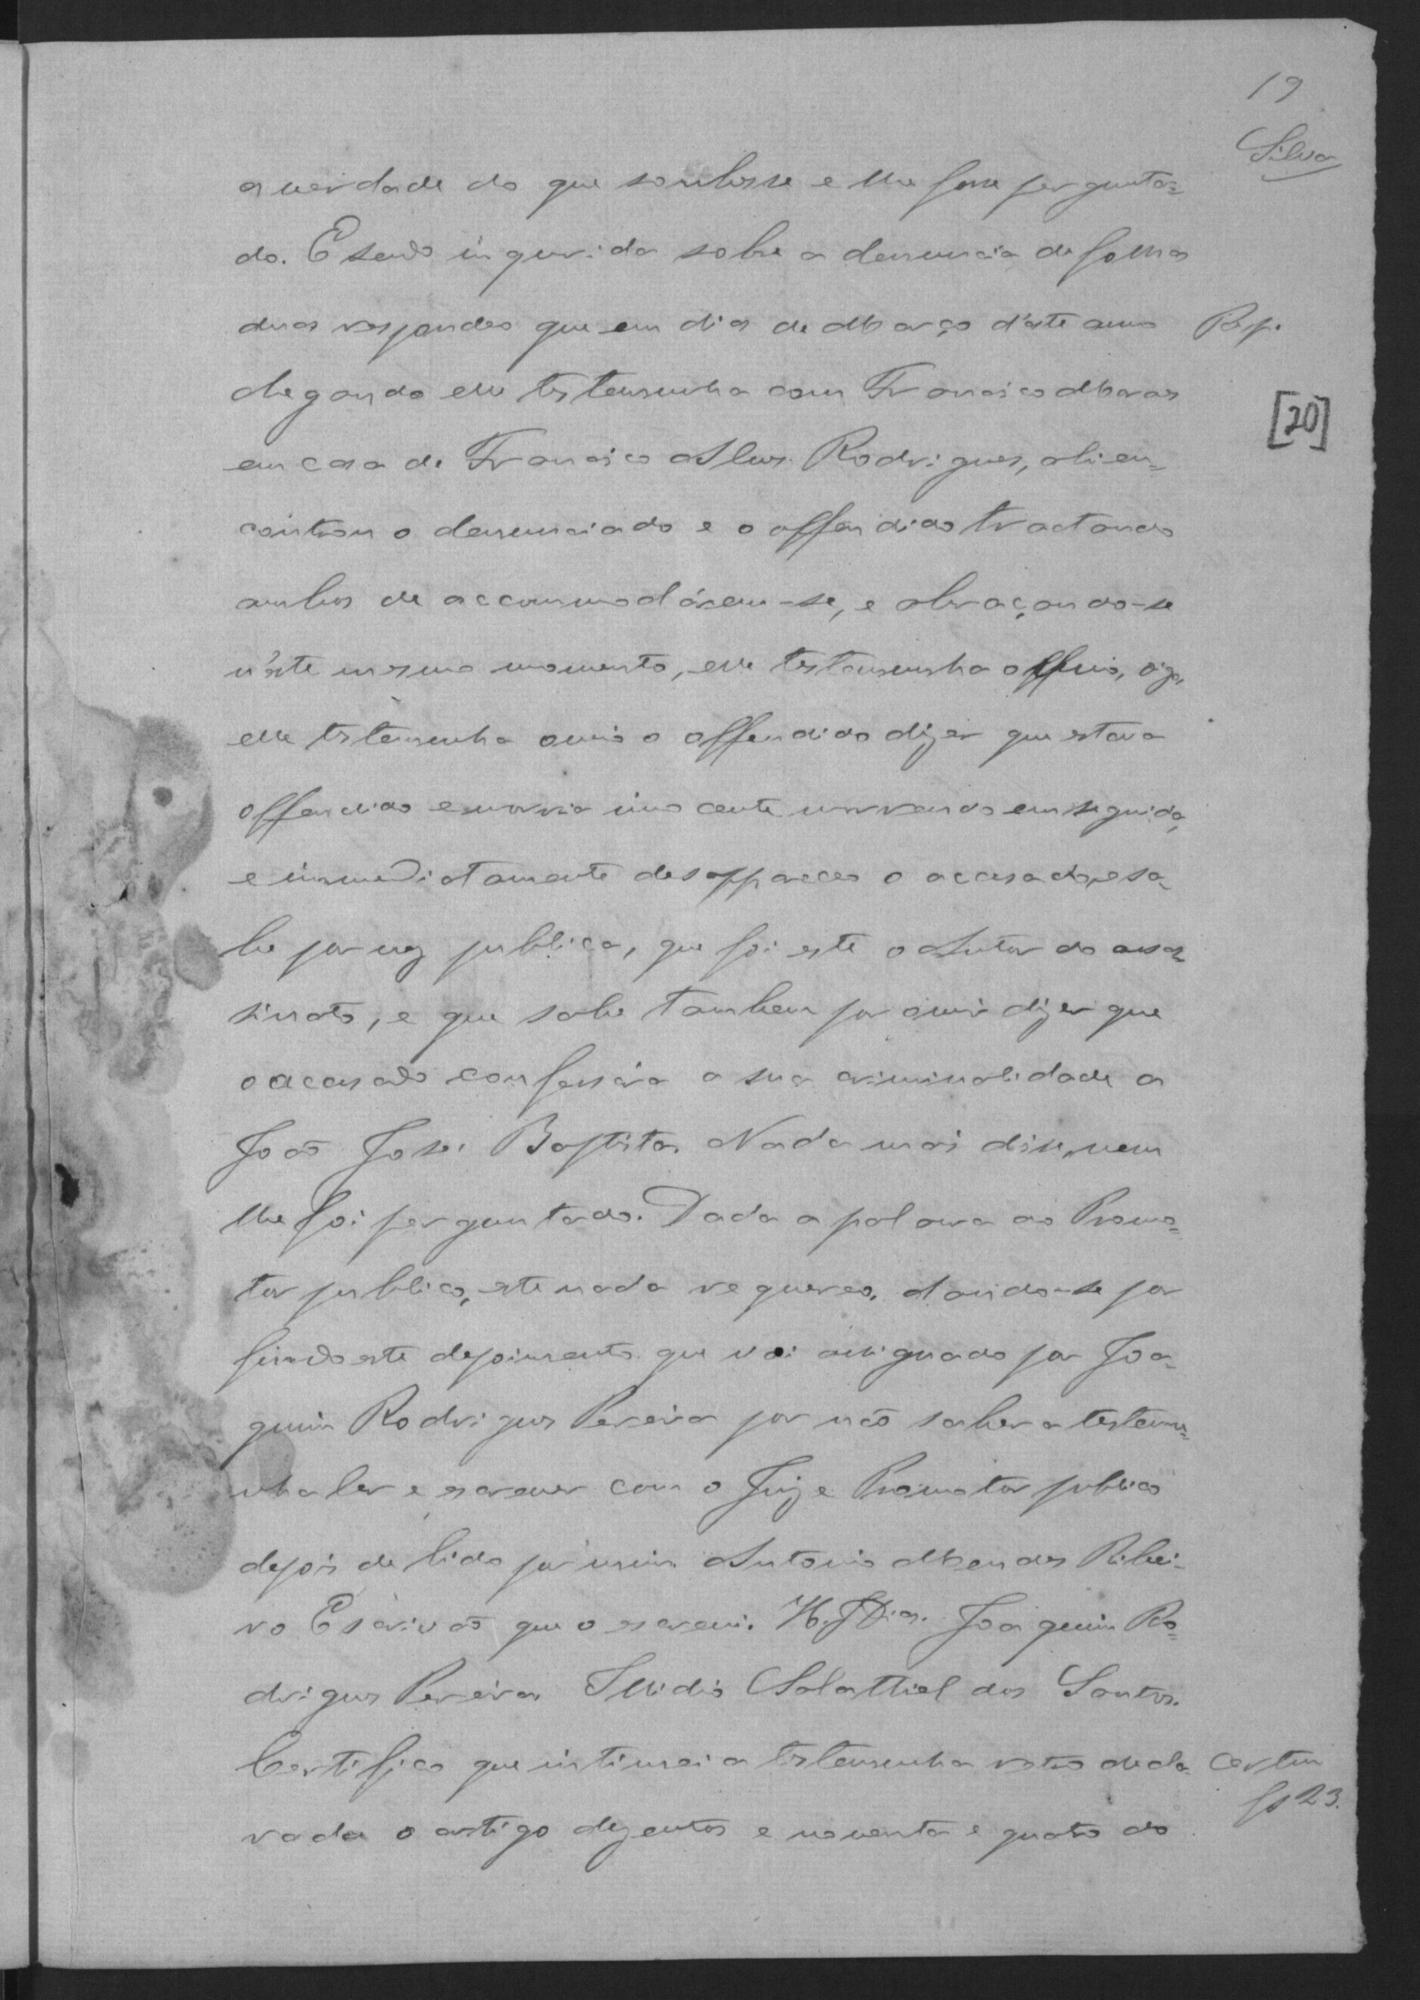 19
Silva
a verdade do que soubesse e lhe fosse pergunta=
do. E sendo inquirida sobre a denuncia de folhas
duas respondeo que em dias de Março d'este anno
Resp.
chegando elle testemunha com Francisco Moraes
[20]
em casa de Francisco Alves Rodrigues, ali en=
controu o denunciado e o offendido tractando
ambos de accommodárem-se, e abraçando-se
n'este mesmo momento, elle testemunha offuio, digo,
elle testemunha ouvio o offendido dizer que estava
offendido e morria innocente morrendo em seguida,
e immediatamente desappareceo o accusado, e sa=
be por voz publica, que foi este o Autor do assas
sinato, e que sabe tambem por ouvir dizer que
o accusado confessára a sua criminalidade a
João José Baptista. Nada mais disse, nem
lhe foi perguntado. Dada a palavra ao Promo=
tor publico, este nada requereo, dando-se por
findo este depoimento que vai assignado por Joa=
quim Rodrigues Pereira por não saber a testemu=
nha ler e escrever com o Juiz e Promotor publico
depois de lido por mim Antonio Mendes Ribei=
ro Escrivão que o escrevi. H. J. Dias. Joaquim Ro=
drigues Pereira Illidio Salathiel dos Santos.
Certifico que intimei a testemunha retro decla=
certm
fs 23.
rada o artigo dezentos e noventa e quatro do